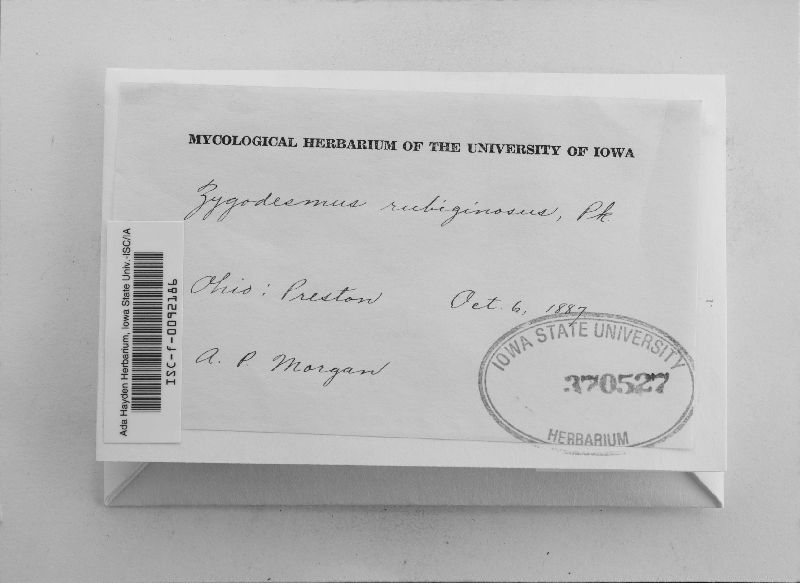 MYCOLOGICAL HERBARIUM OF THE UNIVERSITY OF IOWA
Zygodesmus rubiginosus, Pk.
Ohio: Preston Oct. 6, 1887
A. P. Morgan
IOWA STATE UNIVERSITY
370527
HERBARIUM
Ada Hayden Herbarium, Iowa State Univ.-ISC/IA
ISC-f-0092186